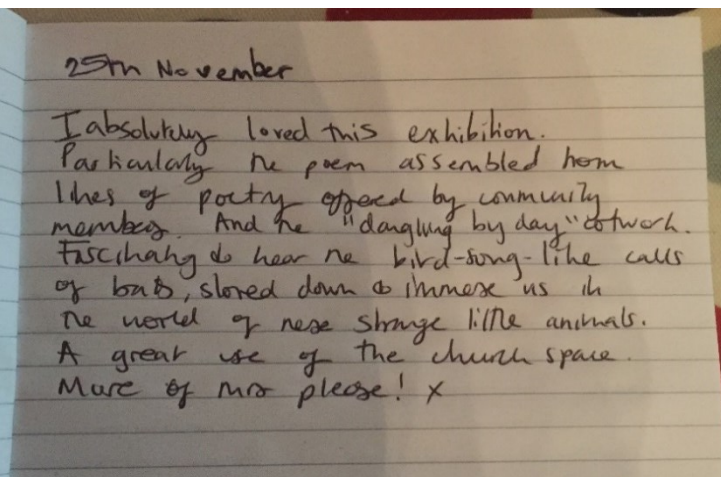 25th November
I absolutely loved this exhibition.
Particularly the poem assembled from
lines of poetry offered by community
members. And the "dangling by day" artwork.
Fascinating to hear the bird-song-like calls
of bats, slowed down to immerse us in
the world of these strange little animals.
A great use of the church space.
More of this please! x